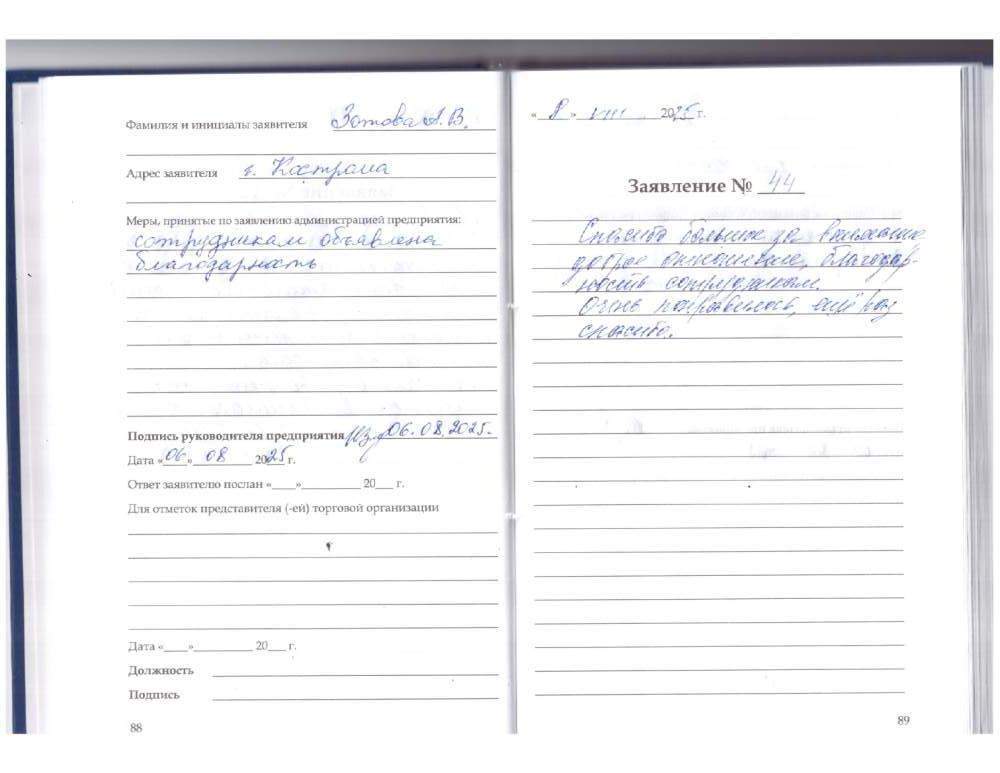 Фамилия и инициалы заявителя Зотова А. В.
Адрес заявителя г. Кострома
Меры, принятые по заявлению администрацией предприятия:
сотрудникам объявлена
благодарность
Подпись руководителя предприятия 06.08.2025.
Дата «06» 08 2025 г.
Ответ заявителю послан «____»__________ 20___ г.
Для отметок представителя (-ей) торговой организации
Дата «____»__________ 20___ г.
Должность
Подпись
88
« » VIII 2025 г.
Заявление № 44
Спасибо большое за внимание
доброе отношение, благодар-
ность сотрудникам.
Очень понравилось, ещё раз
спасибо.
89